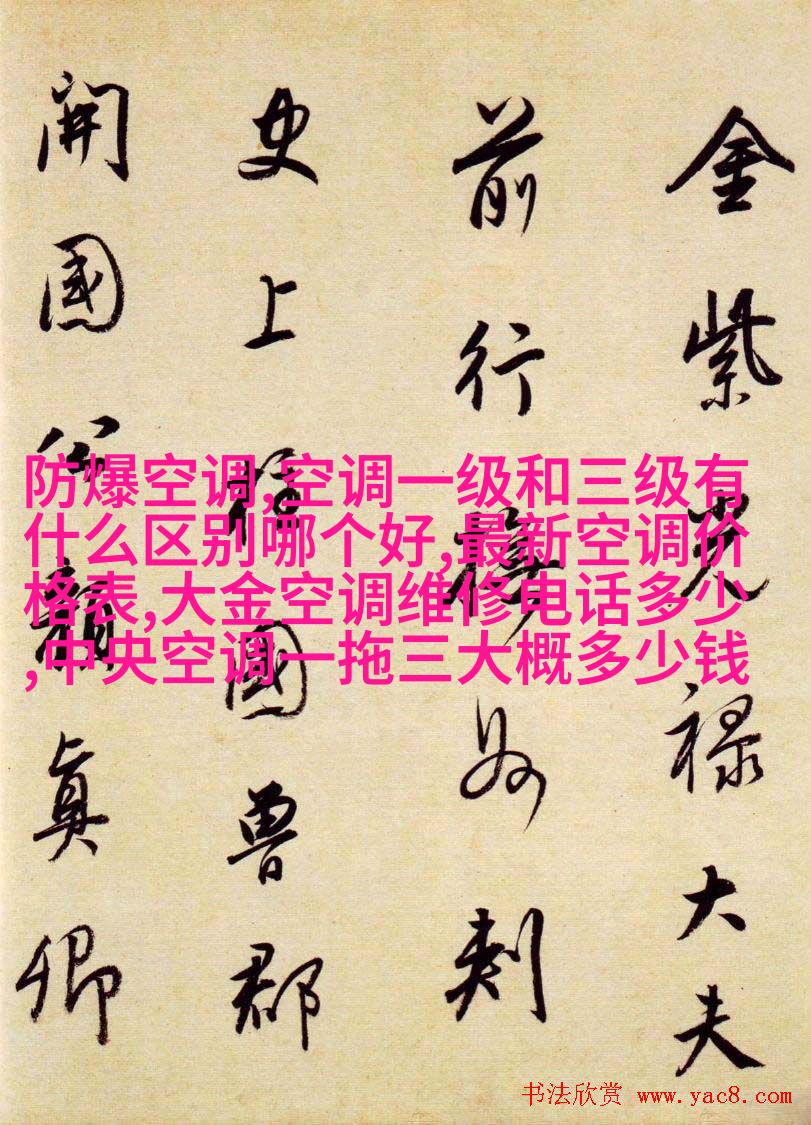 金紫光禄大夫
前行撫州刺
史上柱國魯郡
開國公顏真卿
防爆空调,空调一级和三级有
什么区别哪个好,最新空调价
格表,大金空调维修电话多少
,中央空调一拖三大概多少钱
书法欣赏 www.yac8.com